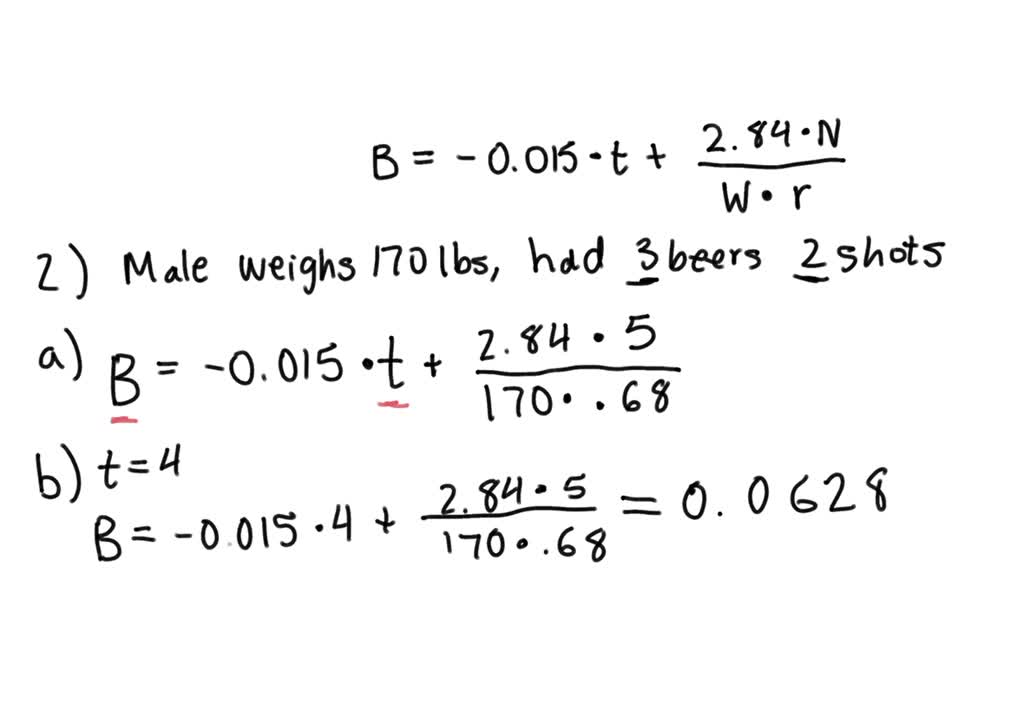 B = -0.015·t + 2.84·N / W·r
2) Male weighs 170 lbs, had 3 beers 2 shots
a) B = -0.015·t + 2.84·5 / 170·.68
b) t=4
B = -0.015·4 + 2.84·5 / 170·.68 = 0.0628